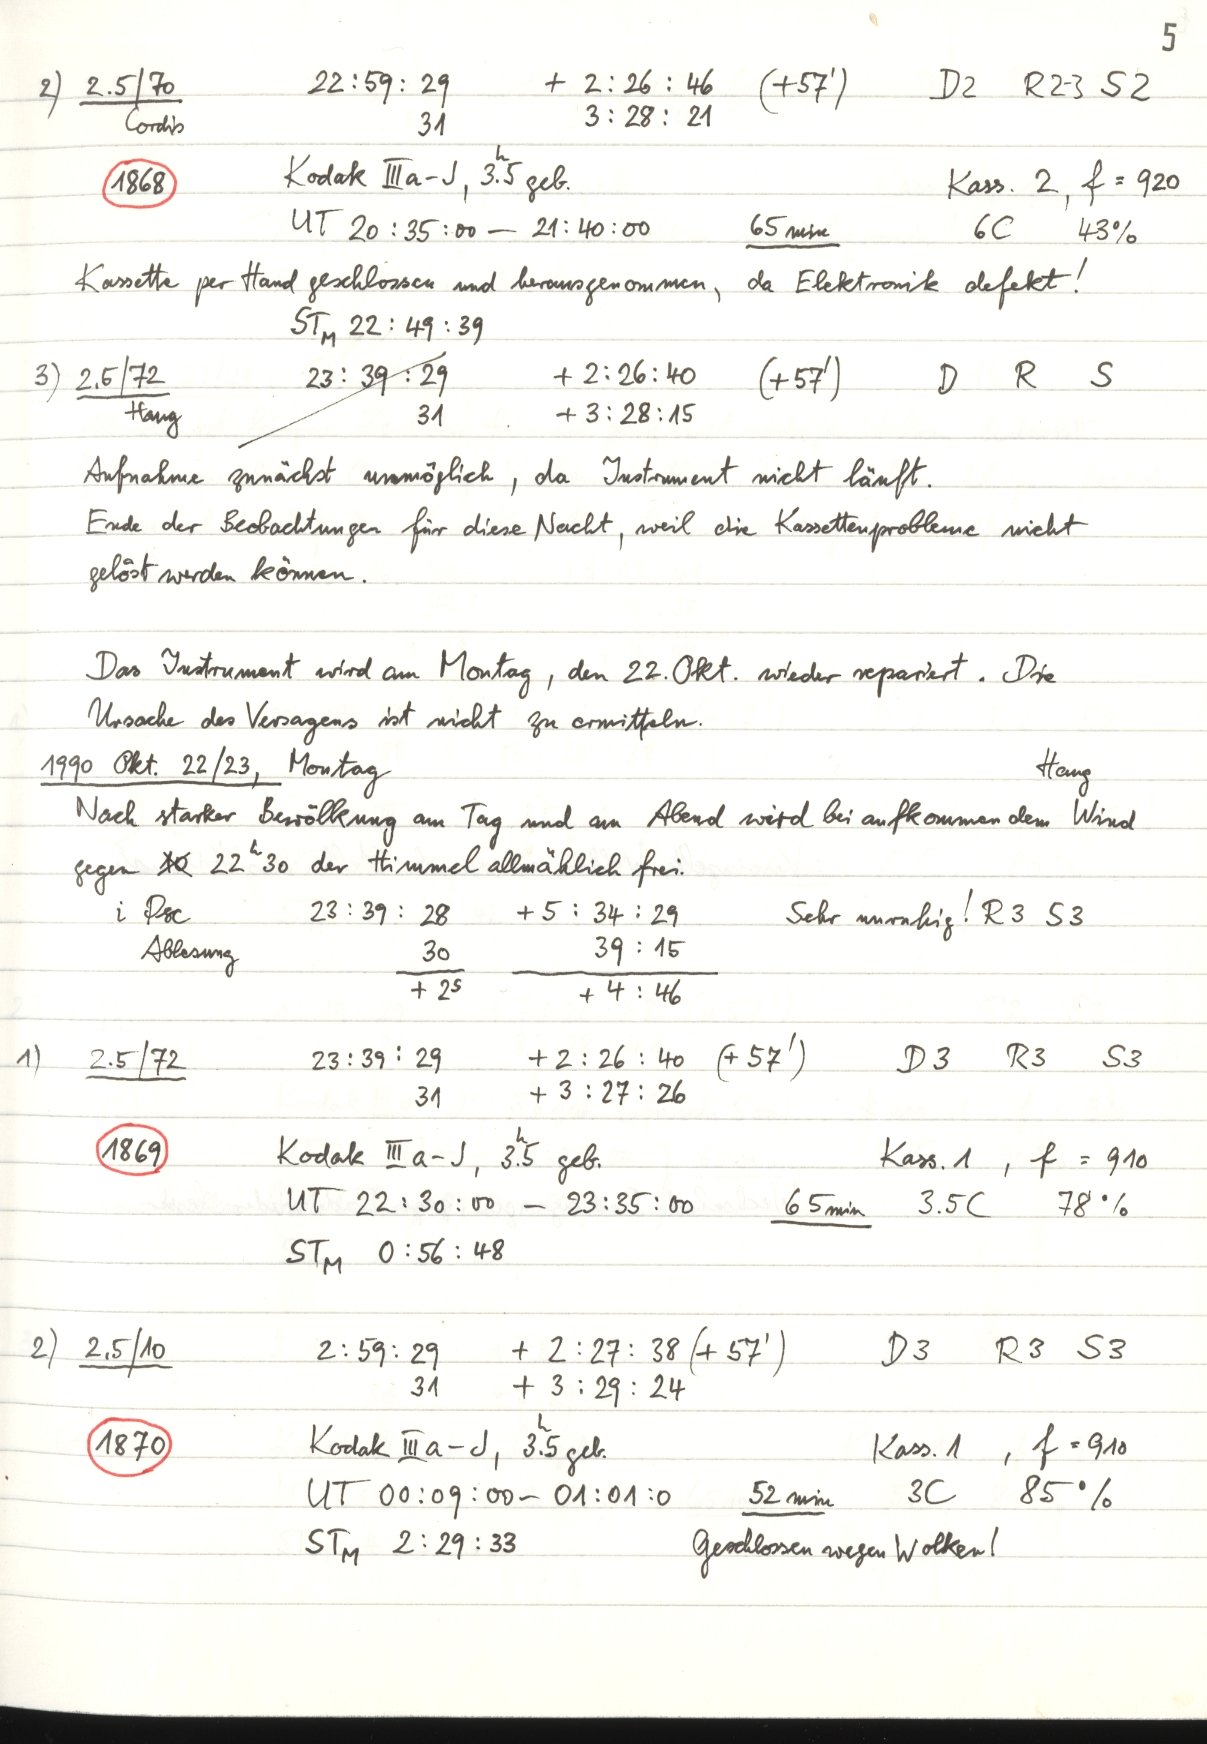 5
2) 2.5/70 22:59:29 + 2:26:46 (+57') D2 R2-3 S2
Cordis 31 3:28:21
1868 Kodak IIIa-J, 3.5h geb. Kass. 2, f = 920
UT 20:35:00 — 21:40:00 65 min 6C 43%
Kassette per Hand geschlossen und herausgenommen, da Elektronik defekt!
STM 22:49:39
3) 2.5/72 23:39:29 + 2:26:40 (+57') D R S
Haug 31 + 3:28:15
Aufnahme zunächst unmöglich, da Instrument nicht läuft.
Ende der Beobachtungen für diese Nacht, weil die Kassettenprobleme nicht
gelöst werden können.
Das Instrument wird am Montag, den 22. Okt. wieder repariert. Die
Ursache des Versagens ist nicht zu ermitteln.
1990 Okt. 22/23, Montag Haug
Nach starker Bewölkung am Tag und am Abend wird bei aufkommendem Wind
gegen 22h30 der Himmel allmählich frei.
i Psc 23:39:28 + 5:34:29 Sehr unruhig! R3 S3
Ablesung 30 39:15
+ 2s + 4:46
1) 2.5/72 23:39:29 + 2:26:40 (+57') D3 R3 S3
31 + 3:27:26
1869 Kodak IIIa-J, 3.5h geb. Kass. 1, f = 910
UT 22:30:00 — 23:35:00 65min 3.5C 78%
STM 0:56:48
2) 2.5/10 2:59:29 + 2:27:38 (+57') D3 R3 S3
31 + 3:29:24
1870 Kodak IIIa-J, 3.5h geb. Kass. 1, f = 910
UT 00:09:00 — 01:01:0 52 min 3C 85%
STM 2:29:33 Geschlossen wegen Wolken!